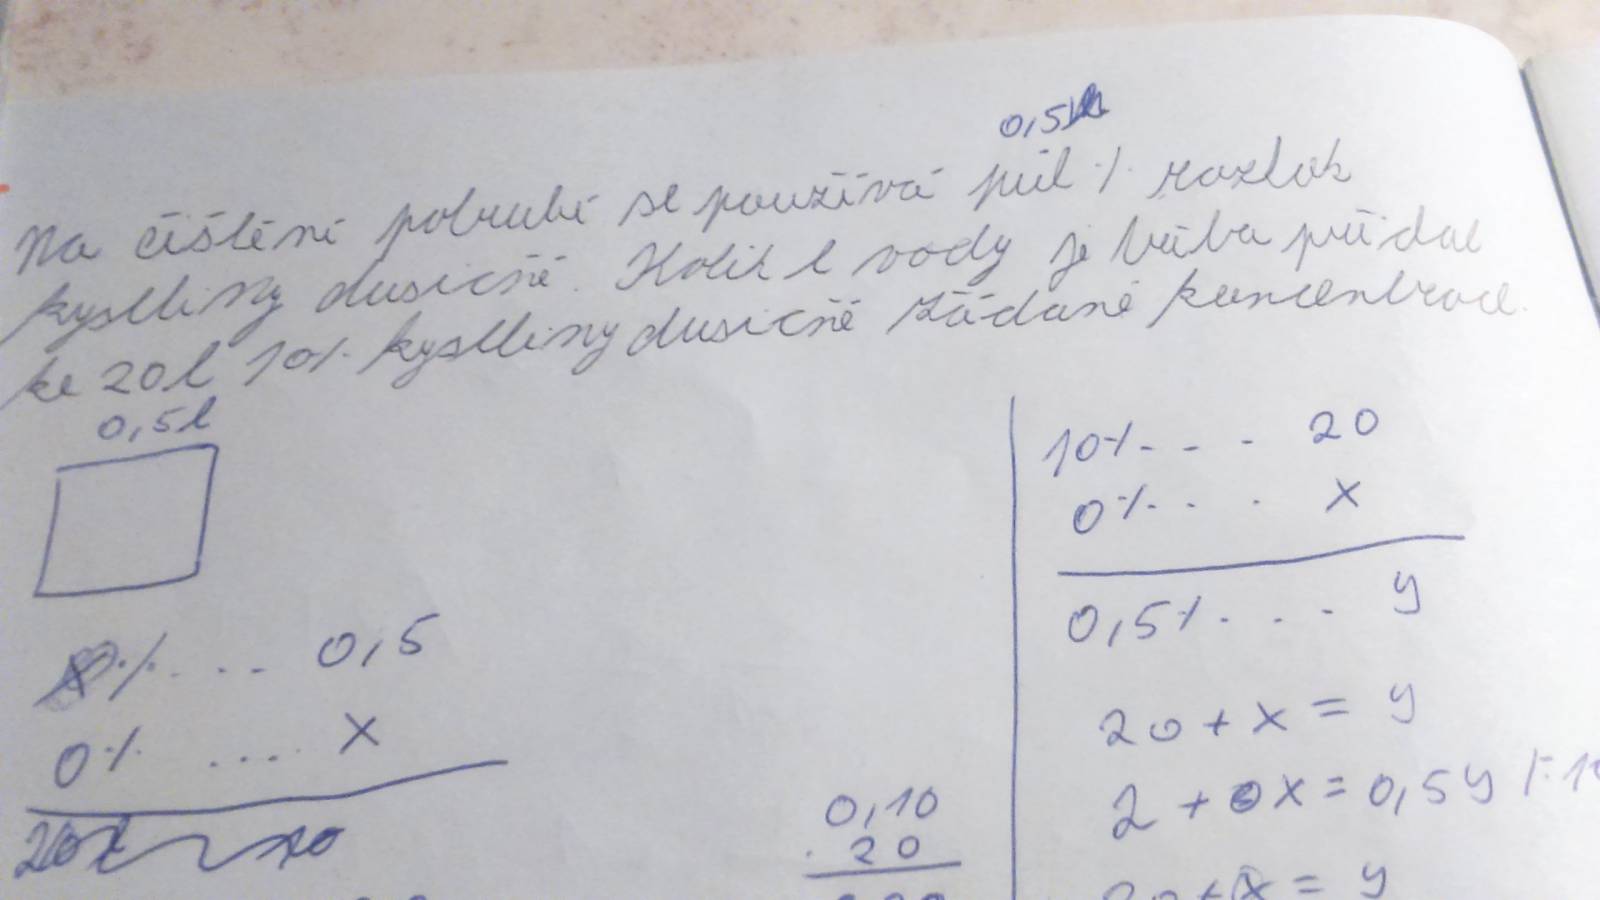 0,5
Na čištění potrubí se používá půl % roztok
kyseliny dusičné. Kolik l vody je třeba přidat
ke 20l 10% kyseliny dusičné žádané koncentrace.
0,5l
% ... 0,5
0% .... x
0,10
. 20
10% - - - 20
0% . . . x
0,5% . . . y
20 + x = y
2 + 0x = 0,5y
20 + x = y